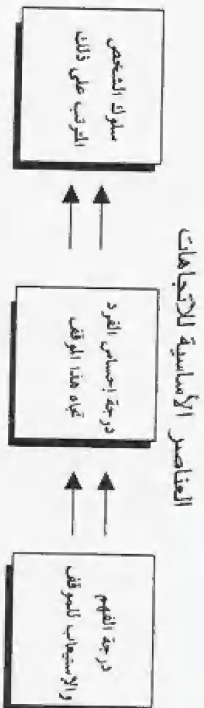 العناصر الأساسية للاتجاهات
درجة الفهم
والاستيعاب للموقف
درجة إحساس الفرد
تجاه هذا الموقف
سلوك الشخص
المترتب على ذلك